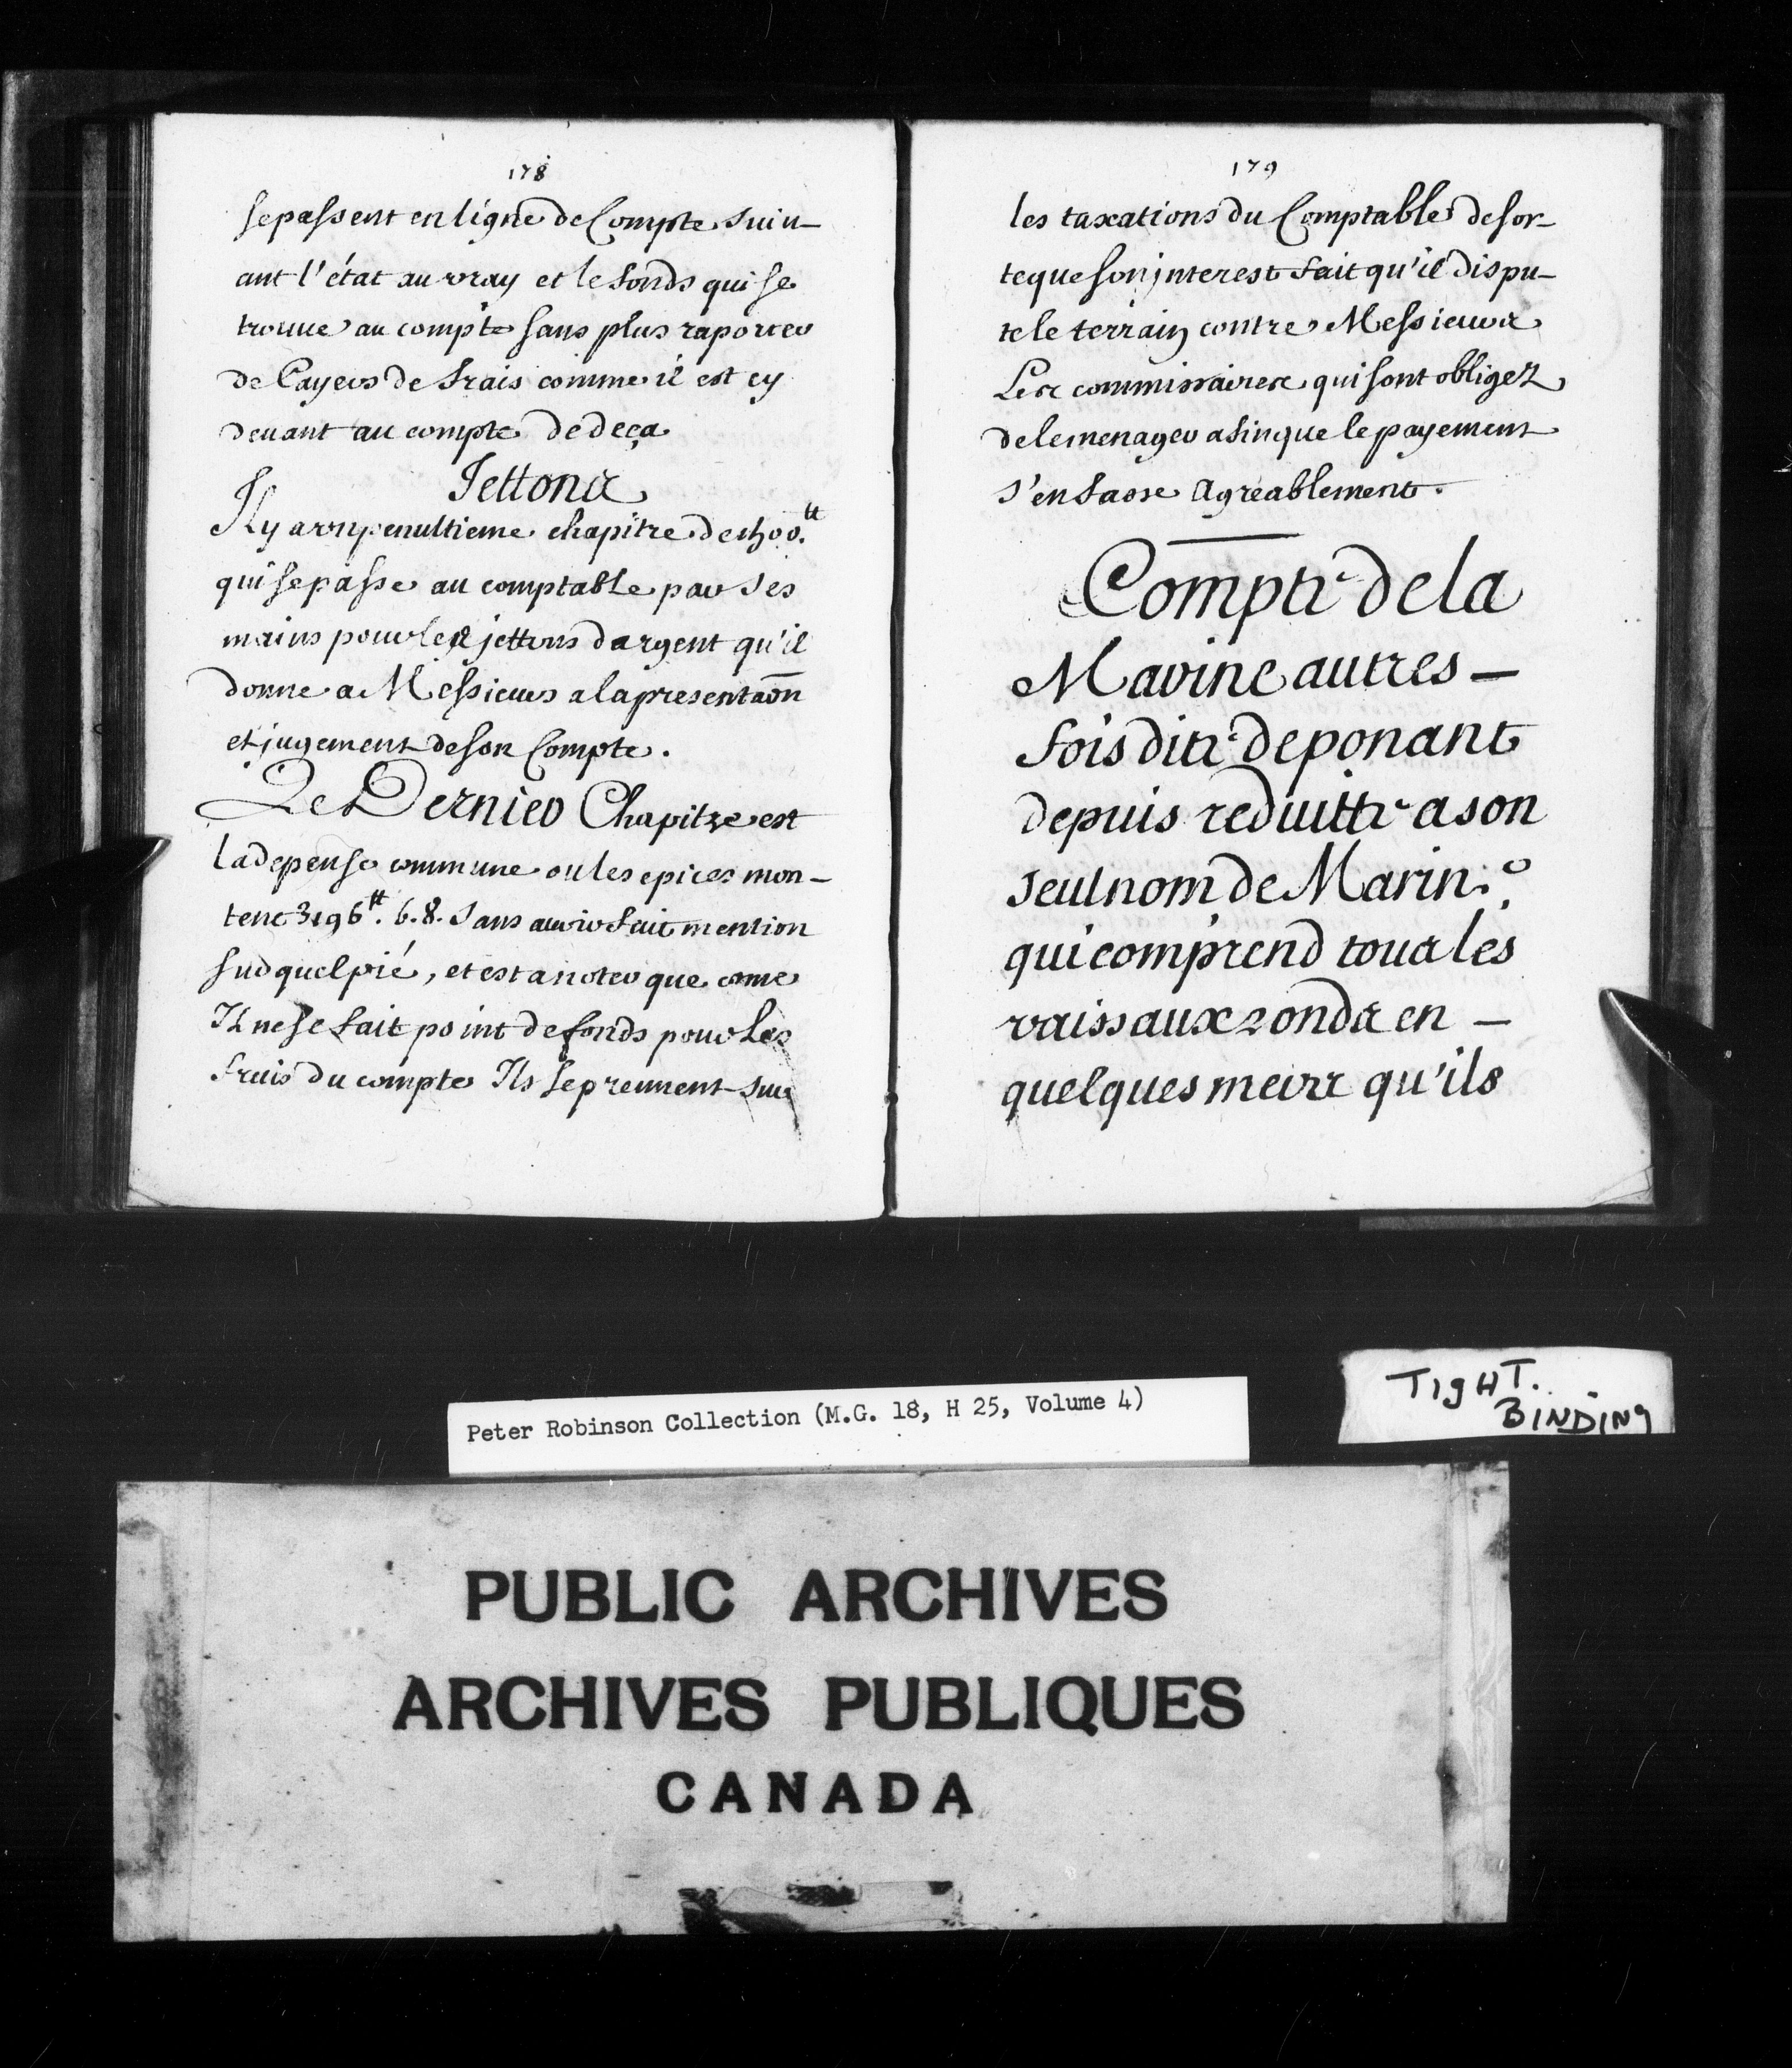 178
se passent en ligne de Compte suiv-
ant l'état au vray et le fonds qui se
trouve au compte sans plus raporter
de Cayers de frais comme il est cy
devant au compte de deça
Jettons
Il y a un penultieme chapitre de
qui se passe au comptable par ses
mains pour les jettons dargent qu'il
donne a Messieurs a la presentaon
et jugement de son Compte.
Le Dernier Chapitre est
la depense commune ou les epices mon-
tent 3196tt. 6.8. Sans avoir fait mention
sur quel pié, et est a noter que come
Il ne se fait point de fonds pour Les
frais du compte Ils se prennent sur
179
les taxations du Comptable de sor-
te que son jnterest fait qu'il dispu-
te le terrain contre Messieurs
Les commissaires qui sont obligez
de le menager afin que le payement
s'en fasse Agreablement.
Compte de la
Marine autres-
fois dite de ponant
depuis reduitte a son
seul nom de Marine.
qui comprend tous les
vaissaux ronds en -
quelques meirs qu'ils
Peter Robinson Collection (M.G. 18, H 25, Volume 4)
TIGHT.
BINDING
PUBLIC ARCHIVES
ARCHIVES PUBLIQUES
CANADA